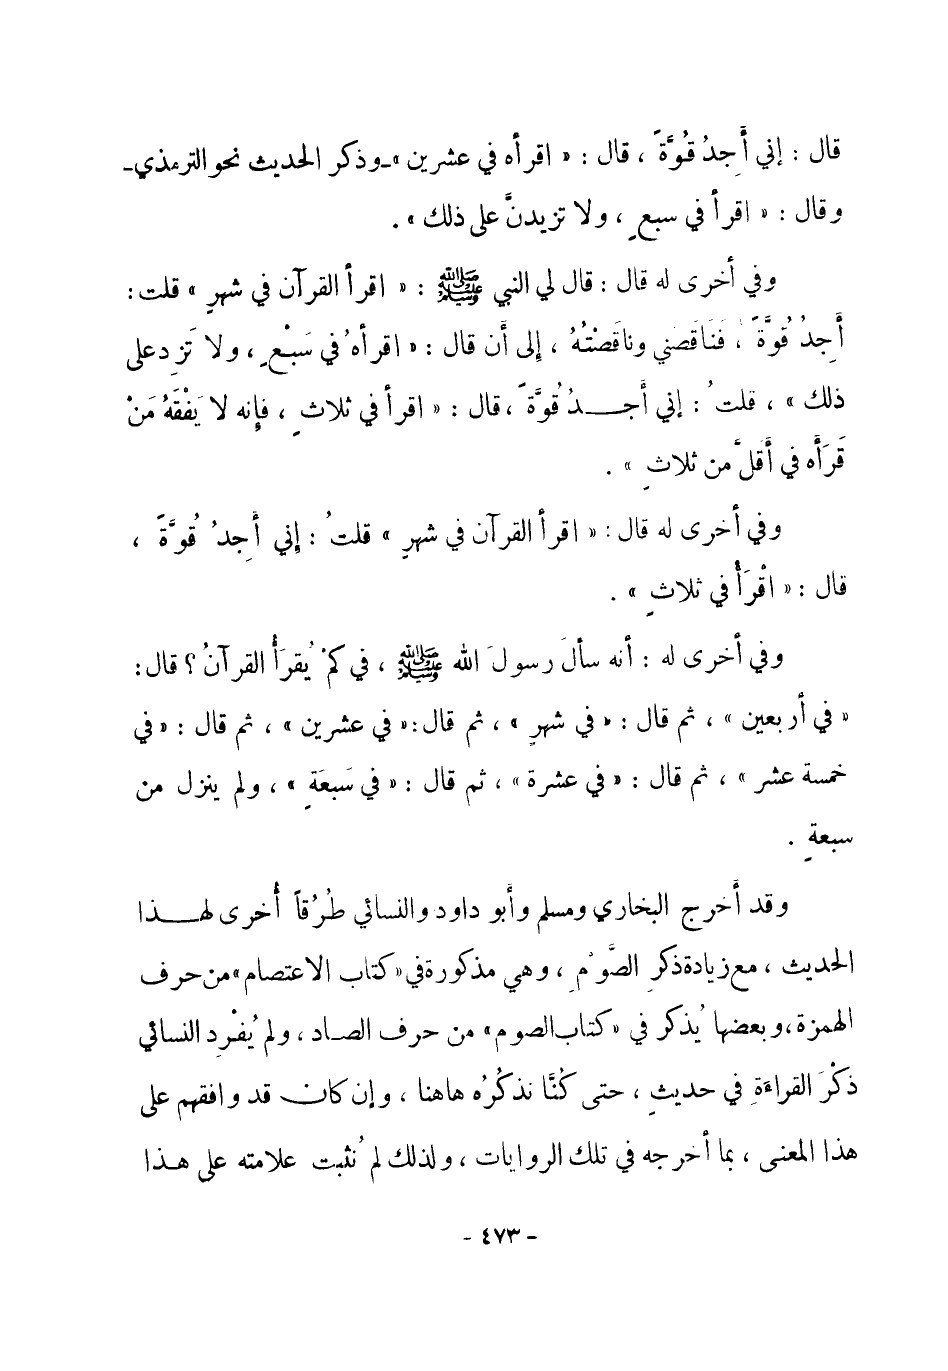 قال : إني أَجِدُ قُوَّةً ، قال : « اقرأه في عشرين »ـ وذكر الحديث نحو الترمذي ـ
وقال : « اقرأ في سبعٍ ، ولا تزيدنَّ على ذلك » .
وفي أخرى له قال : قال لي النبي ﷺ : « اقرأ القرآن في شهرٍ » قلت :
أَجِدُ قُوَّةً ، فَنَاقَصَني وناقَصْتُهُ ، إلى أن قال : « اقرأهُ في سَبْعٍ ، ولا تَزِدعلى
ذلك » ، قلتُ : إني أجـــدُ قُوَّةً ،قال : « اقرأ في ثلاثٍ ، فإنه لا يَفْقَهُ مَنْ
قَرَأَه في أَقلَّ من ثلاثٍ » .
وفي أخرى له قال : « اقرأ القرآن في شهرٍ » قلتُ : إني أَجِدُ قُوَّةً ،
قال : « اقْرَأْ في ثلاثٍ » .
وفي أخرى له : أنه سألَ رسولَ الله ﷺ ، في كمْ يُقرَأُ القرآنُ ؟ قال :
« في أربعين » ، ثم قال : « في شهرٍ » ، ثم قال :« في عشرين » ، ثم قال : « في
خمسة عشر » ، ثم قال : « في عشرة » ، ثم قال : « في سَبعَةٍ » ، ولم ينزل من
سبعةٍ .
وقد أَخرج البخاري ومسلم وأبو داود والنسائي طُرُقاً أُخرى لهـــذا
الحديث ، مع زيادة ذكرِ الصَّوْمِ ، وهي مذكورة في «كتاب الاعتصام» من حرف
الهمزة ،وبعضها يُذكر في «كتاب الصوم» من حرف الصـاد ، ولم يُفْرِد النسائي
ذكْرَ القراءةِ في حديثٍ ، حتى كُنَّا نذكُرُه هاهنا ، وإن كان قد وافقهم على
هذا المعنى ، بما أخرجه في تلك الروايات ، ولذلك لم نُثبت علامته على هـذا
- ٤٧٣ -